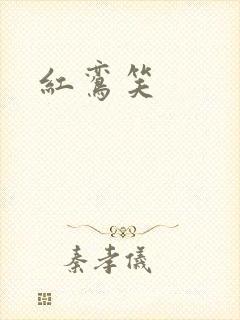 紅鸞笑
秦孝儀